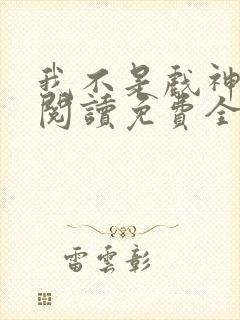 我不是戲神
閱讀免費全
雷雲彰